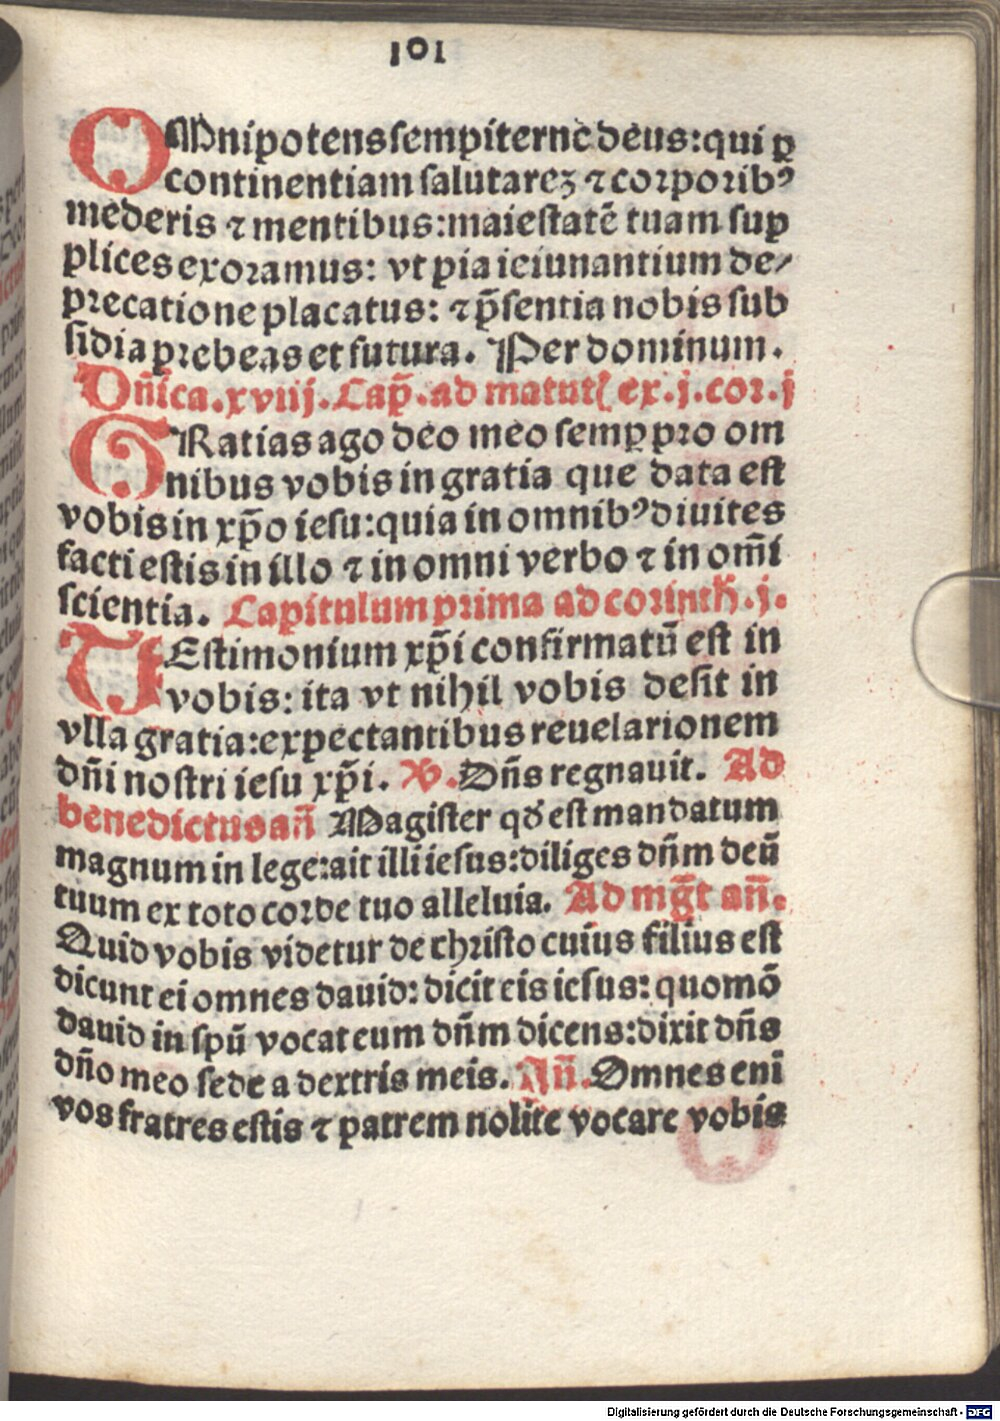 101
OMnipotens sempiterne deus: qui ꝑ
continentiam salutareꝫ ⁊ corporibꝰ
mederis ⁊ mentibus: maiestatē tuam suꝑ
plices exoramus: vt pia ieiunantium de⸗
precatione placatus: ⁊ p̄sentia nobis sub
sidia prebeas et futura. Per dominum.
Dn̄ica.xviij. Cap̄. ad matut̉ ex.j.cor.j
GRatias ago deo meo semꝑ pro om
nibus vobis in gratia que data est
vobis in xp̄o iesu: quia in omnibꝰ diuites
facti estis in illo ⁊ in omni verbo ⁊ in om̄i
scientia. Capitulum prima ad corinth̄.j.
TEstimonium xp̄i confirmatū est in
vobis: ita vt nihil vobis desit in
vlla gratia: expectantibus reuelationem
dn̄i nostri iesu xp̄i. ℣. Dn̄s regnauit. Ad
benedictus an̄ Magister qđ est mandatum
magnum in lege: ait illi iesus: diliges dn̄m deū
tuum ex toto corde tuo alleluia. Ad mḡt an̄.
Quid vobis videtur de christo cuius filius est
dicunt ei omnes dauid: dicit eis iesus: quomō
dauid in spū vocat eum dn̄m dicens: dixit dn̄s
dn̄o meo sede a dextris meis. An̄. Omnes eni
vos fratres estis ⁊ patrem nolite vocare vobis
Digitalisierung gefördert durch die Deutsche Forschungsgemeinschaft - DFG